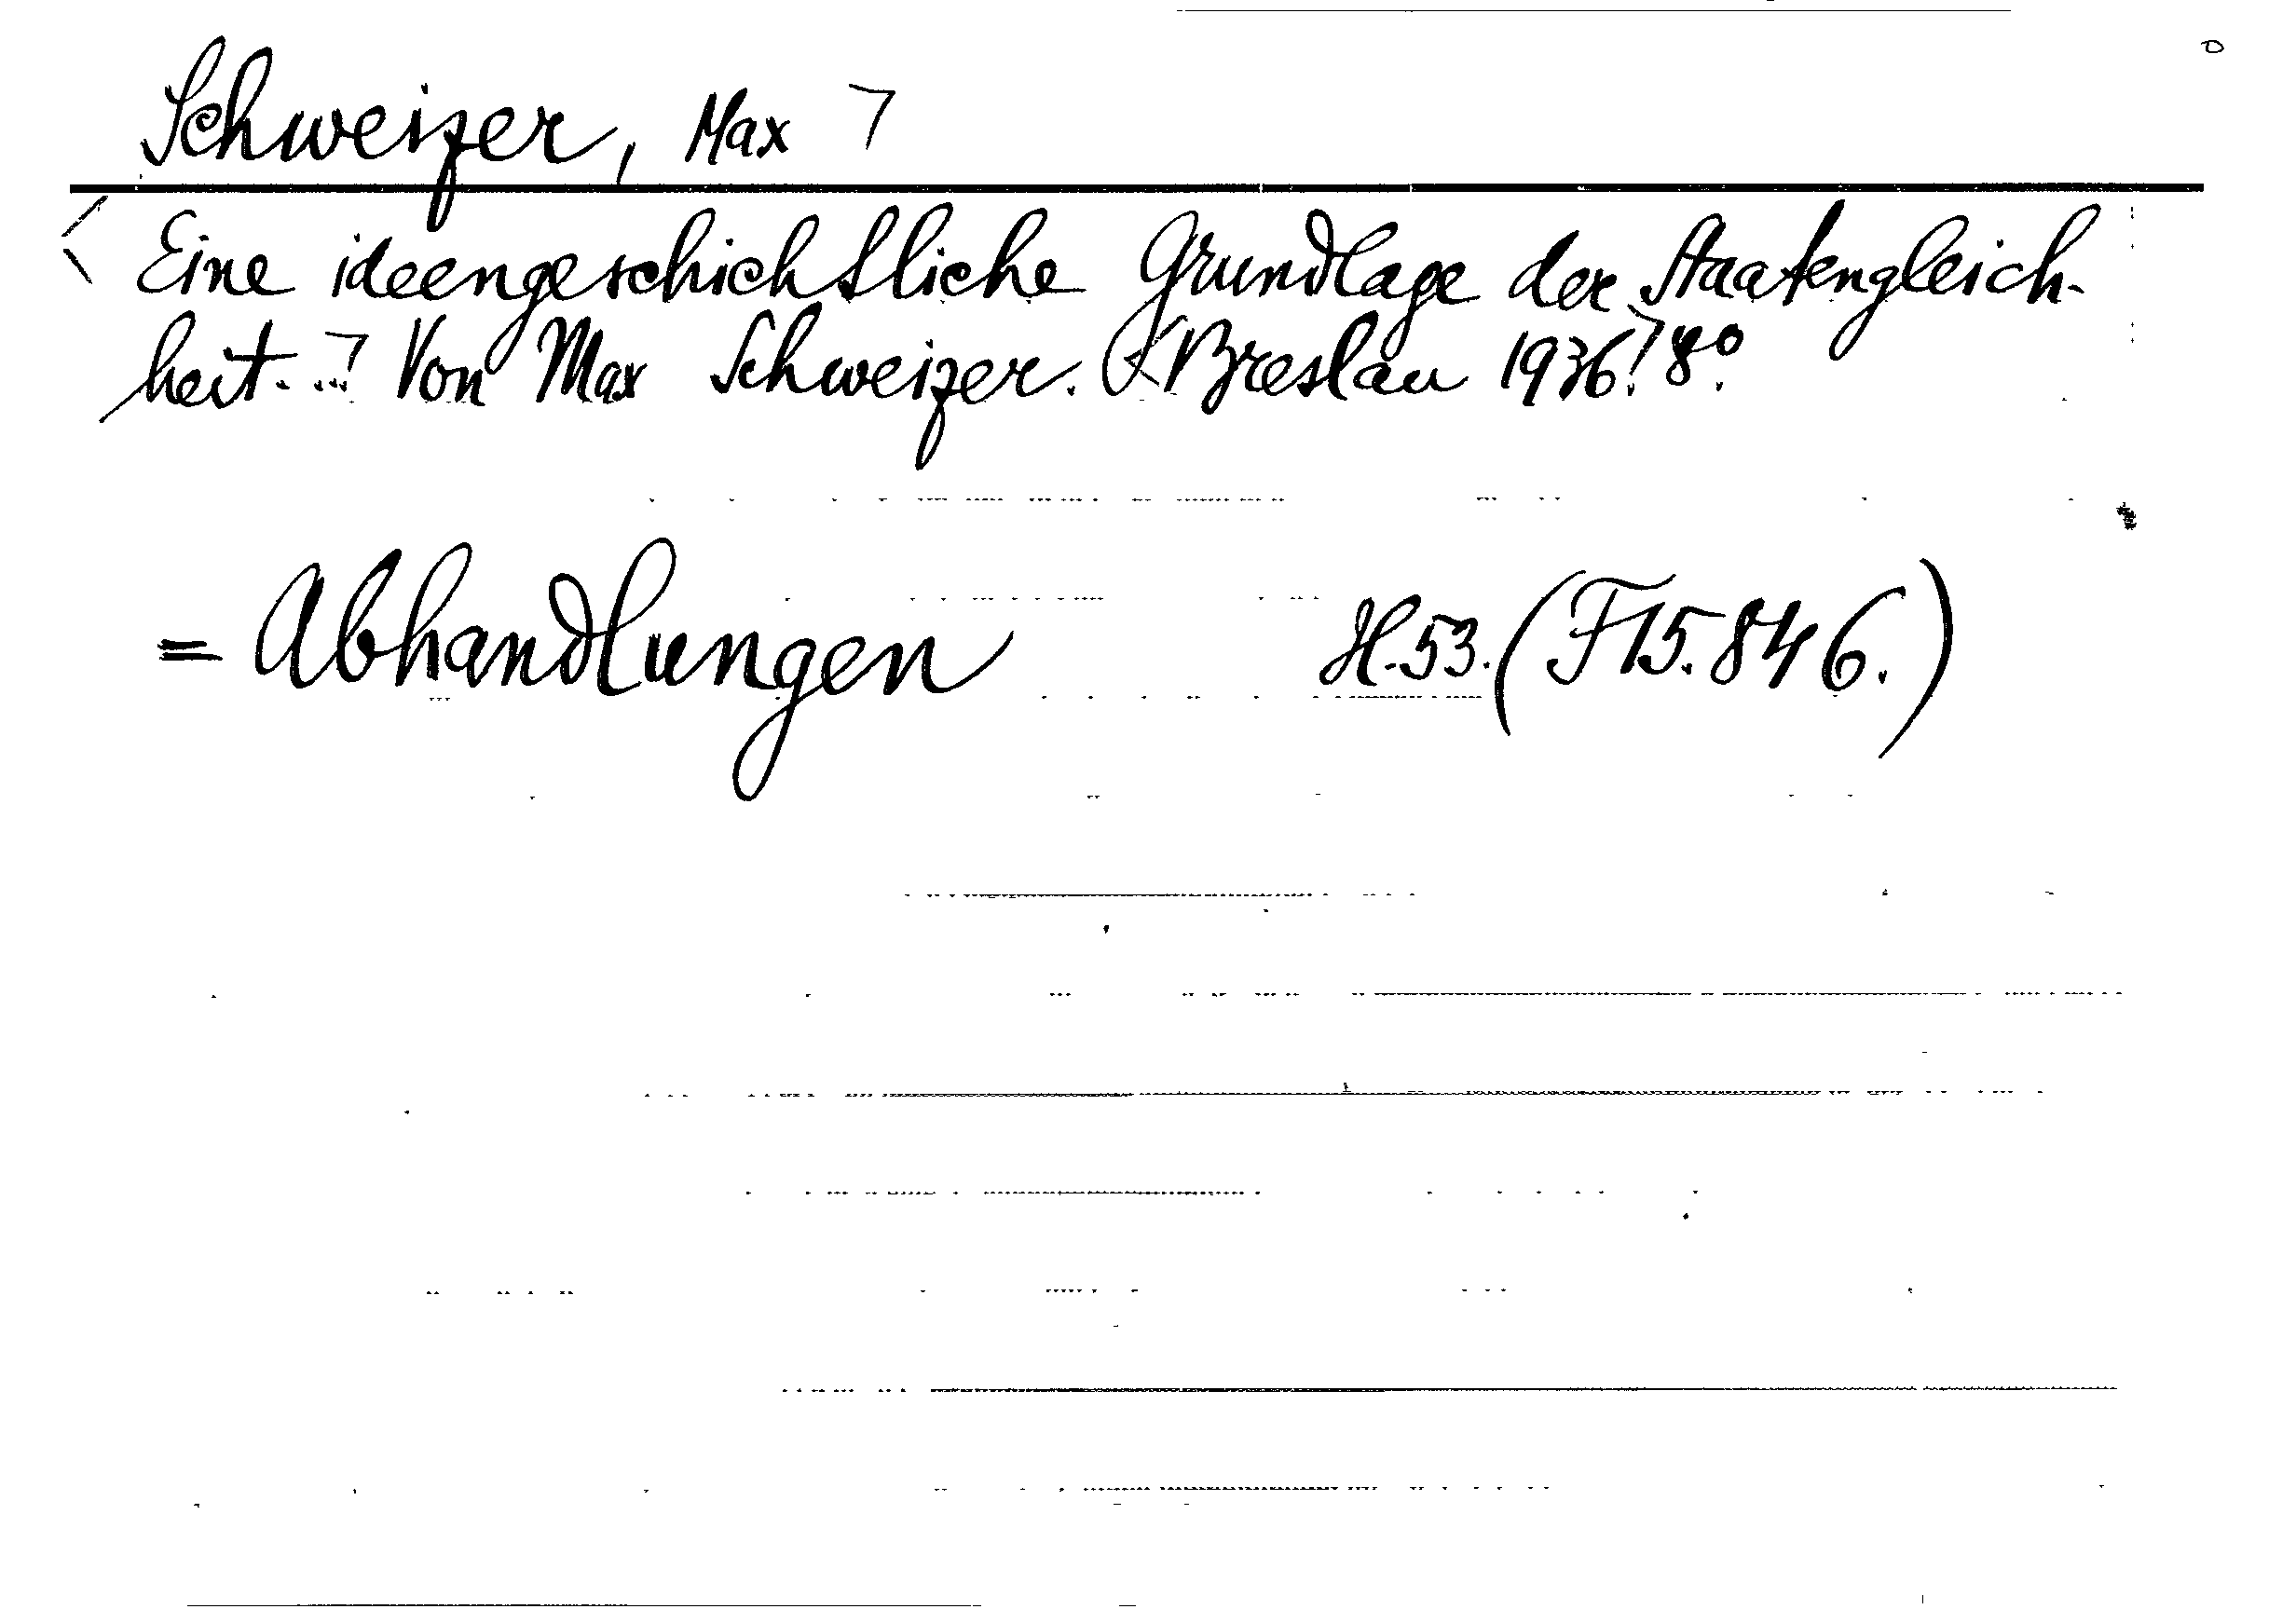 Schweizer, Max ⌝
< Eine ideengeschichtliche Grundlage der Staatengleich-
heit. ..⌝ Von Max Schweizer. <Breslau 1936.⌝ 8°.
= Abhandlungen H. 53. (F 15. 846.)